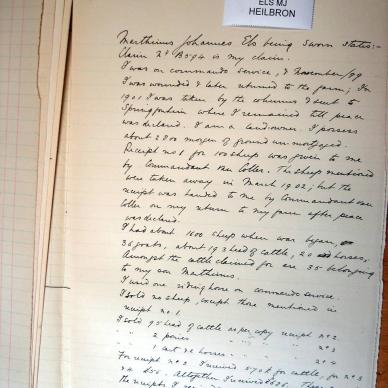 ELS MJ
HEILBRON
Marthinus Johannes Els being sworn states:-
Claim No B594 is my claim.
I was on commando service, & November/99
I was wounded & later returned to the farm; In
1901 I was taken by the columns & sent to
Springfontein where I remained till peace
was declared. I am a landowner. I possess
about 2800 morgen of ground unmortgaged.
Receipt no 1 for 100 sheep was given to me
by Commandant van Coller. The sheep mentioned
were taken away in March 1902; but the
receipt was handed to me by Commandant van
Coller on my return to my farm after peace
was declared.
I had about 1600 sheep when war began,
36 goats, about 192 head of cattle, 20 horses,
Amongst the cattle claimed for are 35 belonging
to my son Marthinus.
I used one riding horse on commando service.
I sold no sheep, except those mentioned in
receipt no 1.
I sold 95 head of cattle as per copy receipt no 2
" 2 ponies " no 3
" 1 cart & 2 horses " no 4
For receipt no 2 I received £570 for cattle, for no 3
Altogether I received
the receipts I